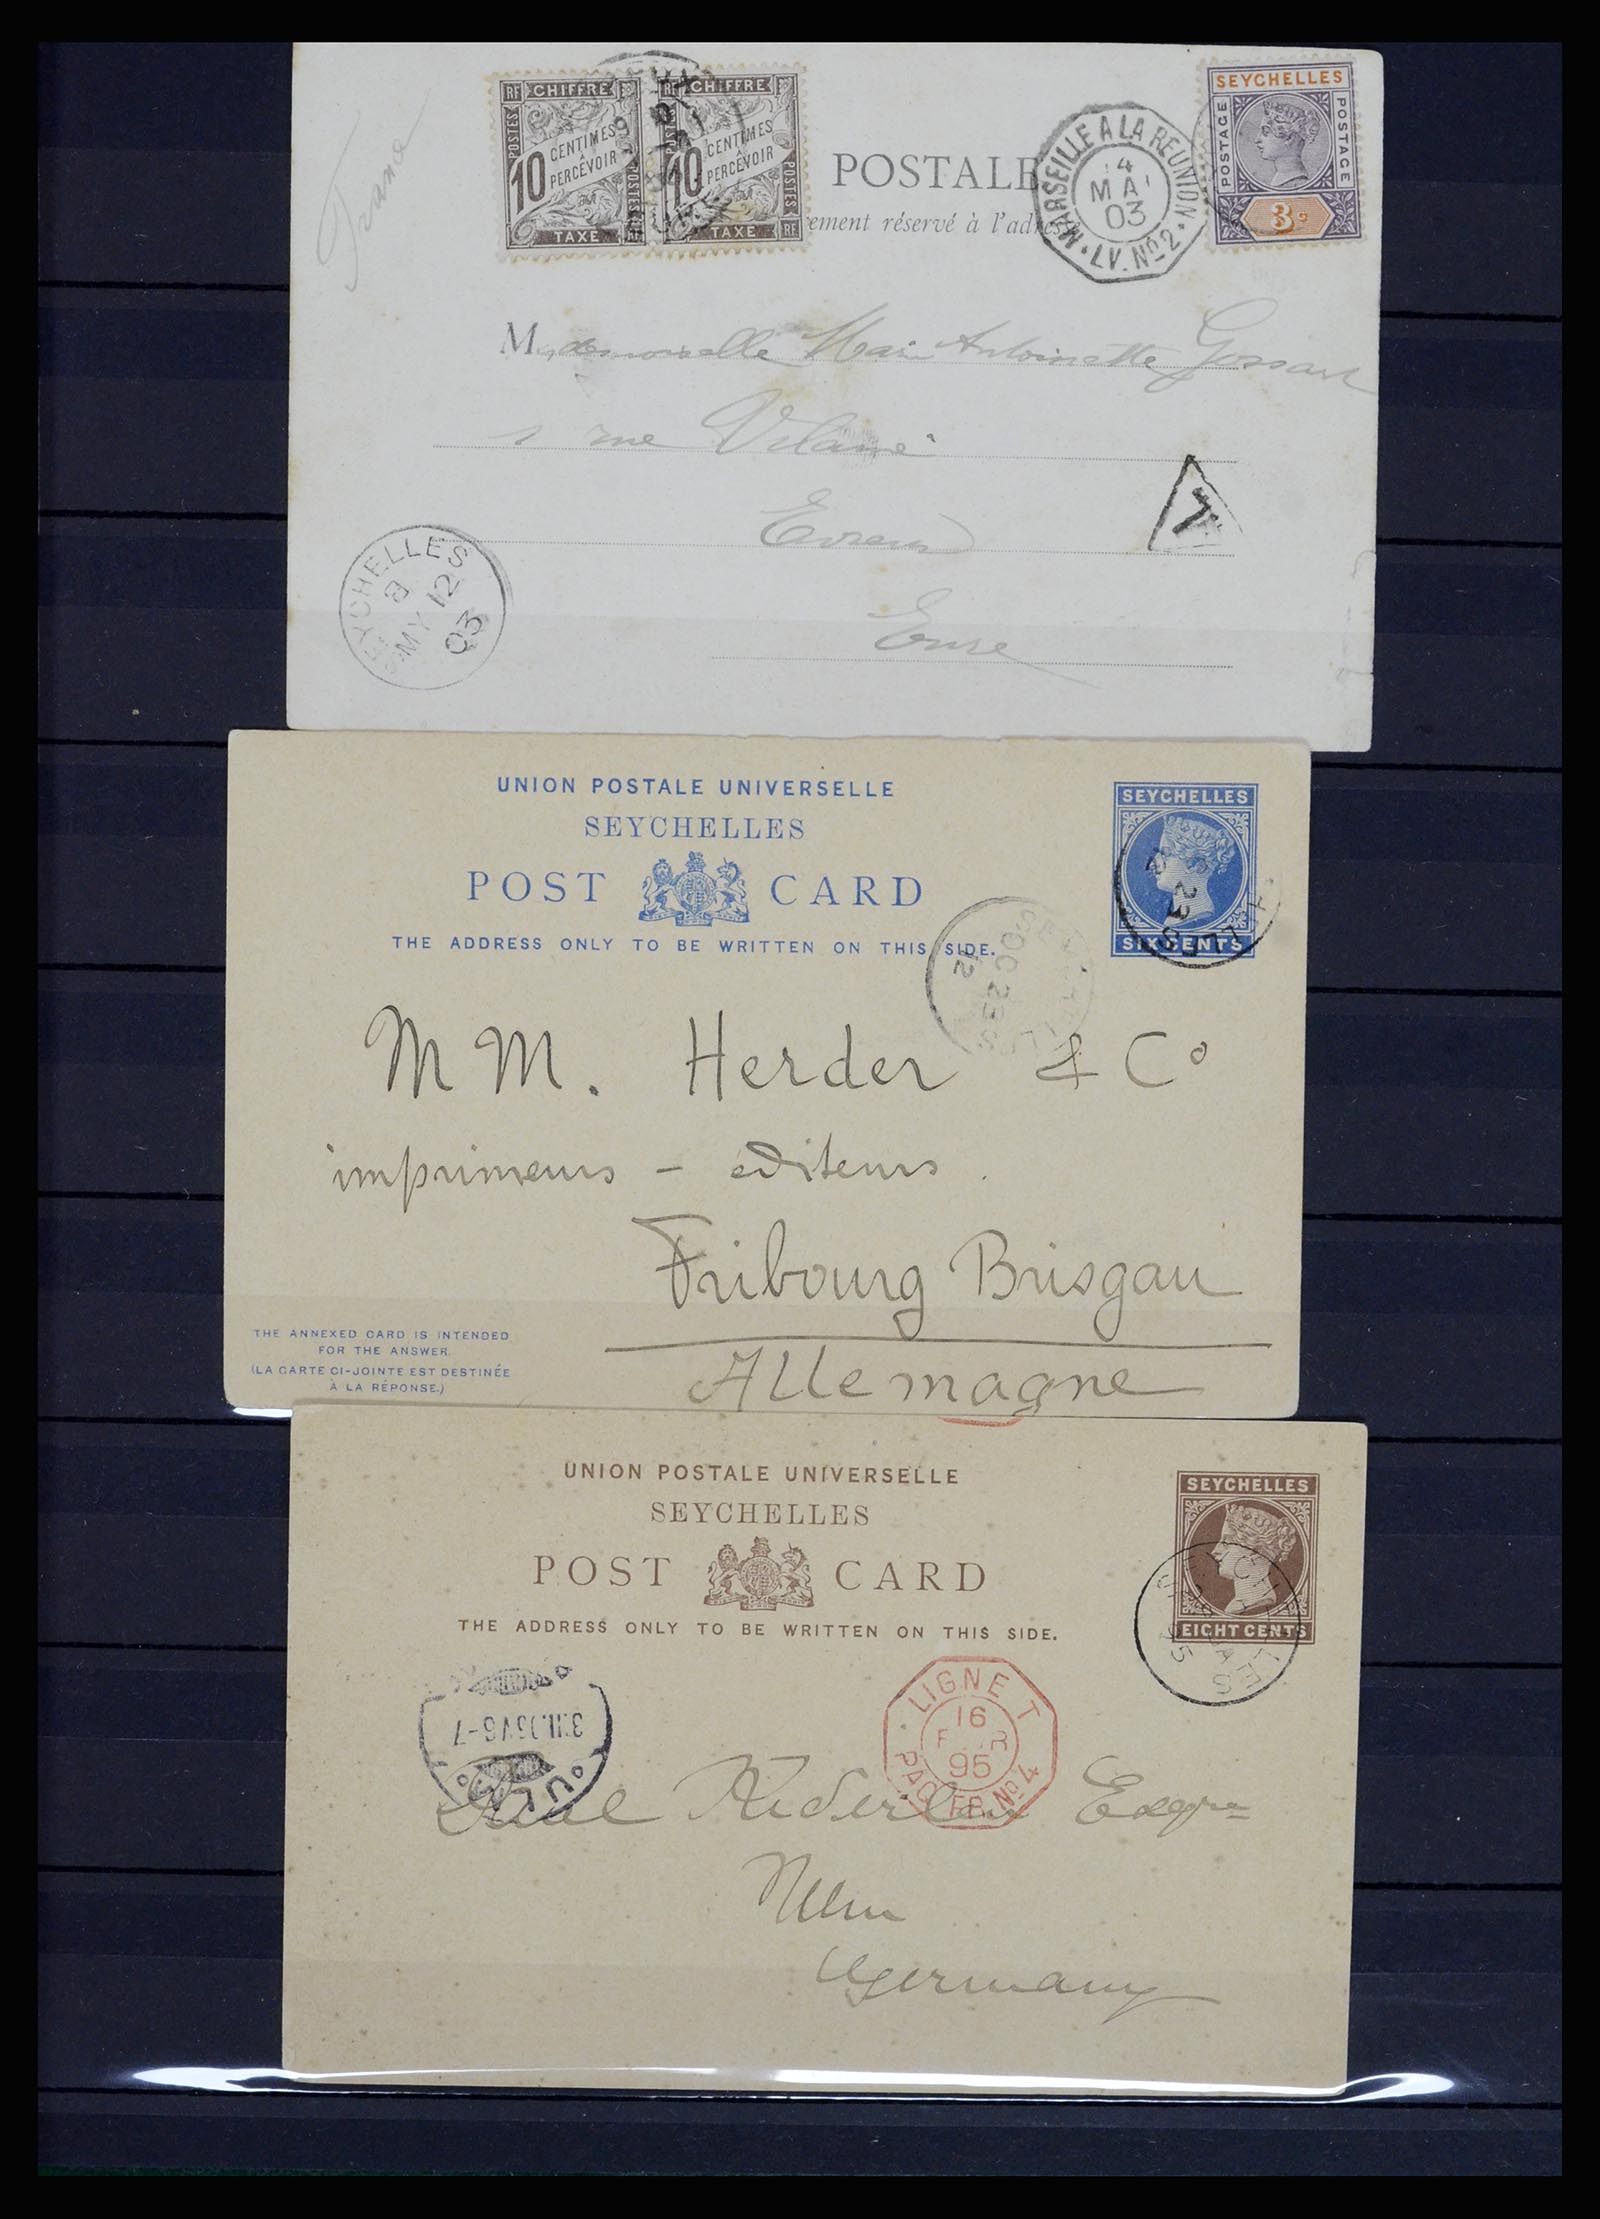 France
RF CHIFFRE
POSTES
10 CENTIMES
À PERCEVOIR
POSTES
TAXE RF
RF CHIFFRE
10 CENTIMES
À PERCEVOIR
POSTES
TAXE RF
POSTALE
ement réservé à l'adres
MARSEILLE A LA REUNION
4
MAI
03
LV. Nº 2
SEYCHELLES
POSTAGE
POSTAGE
3 c
Mademoiselle Marie Antoinette Gossart
1 rue
Evreux
Eure
T
SEYCHELLES
B
MY 12
03
UNION POSTALE UNIVERSELLE
SEYCHELLES
POST CARD
THE ADDRESS ONLY TO BE WRITTEN ON THIS SIDE.
SEYCHELLES
SIX CENTS
MM. Herder & Cº
imprimeurs - editeurs.
Fribourg Brisgau
Allemagne
THE ANNEXED CARD IS INTENDED
FOR THE ANSWER.
(LA CARTE CI-JOINTE EST DESTINÉE
À LA RÉPONSE.)
UNION POSTALE UNIVERSELLE
SEYCHELLES
POST CARD
THE ADDRESS ONLY TO BE WRITTEN ON THIS SIDE.
SEYCHELLES
EIGHT CENTS
SEYCHELLES
95
LIGNE T
16
95
PAQ. FR. Nº 4
ULM
Ulm
Germany